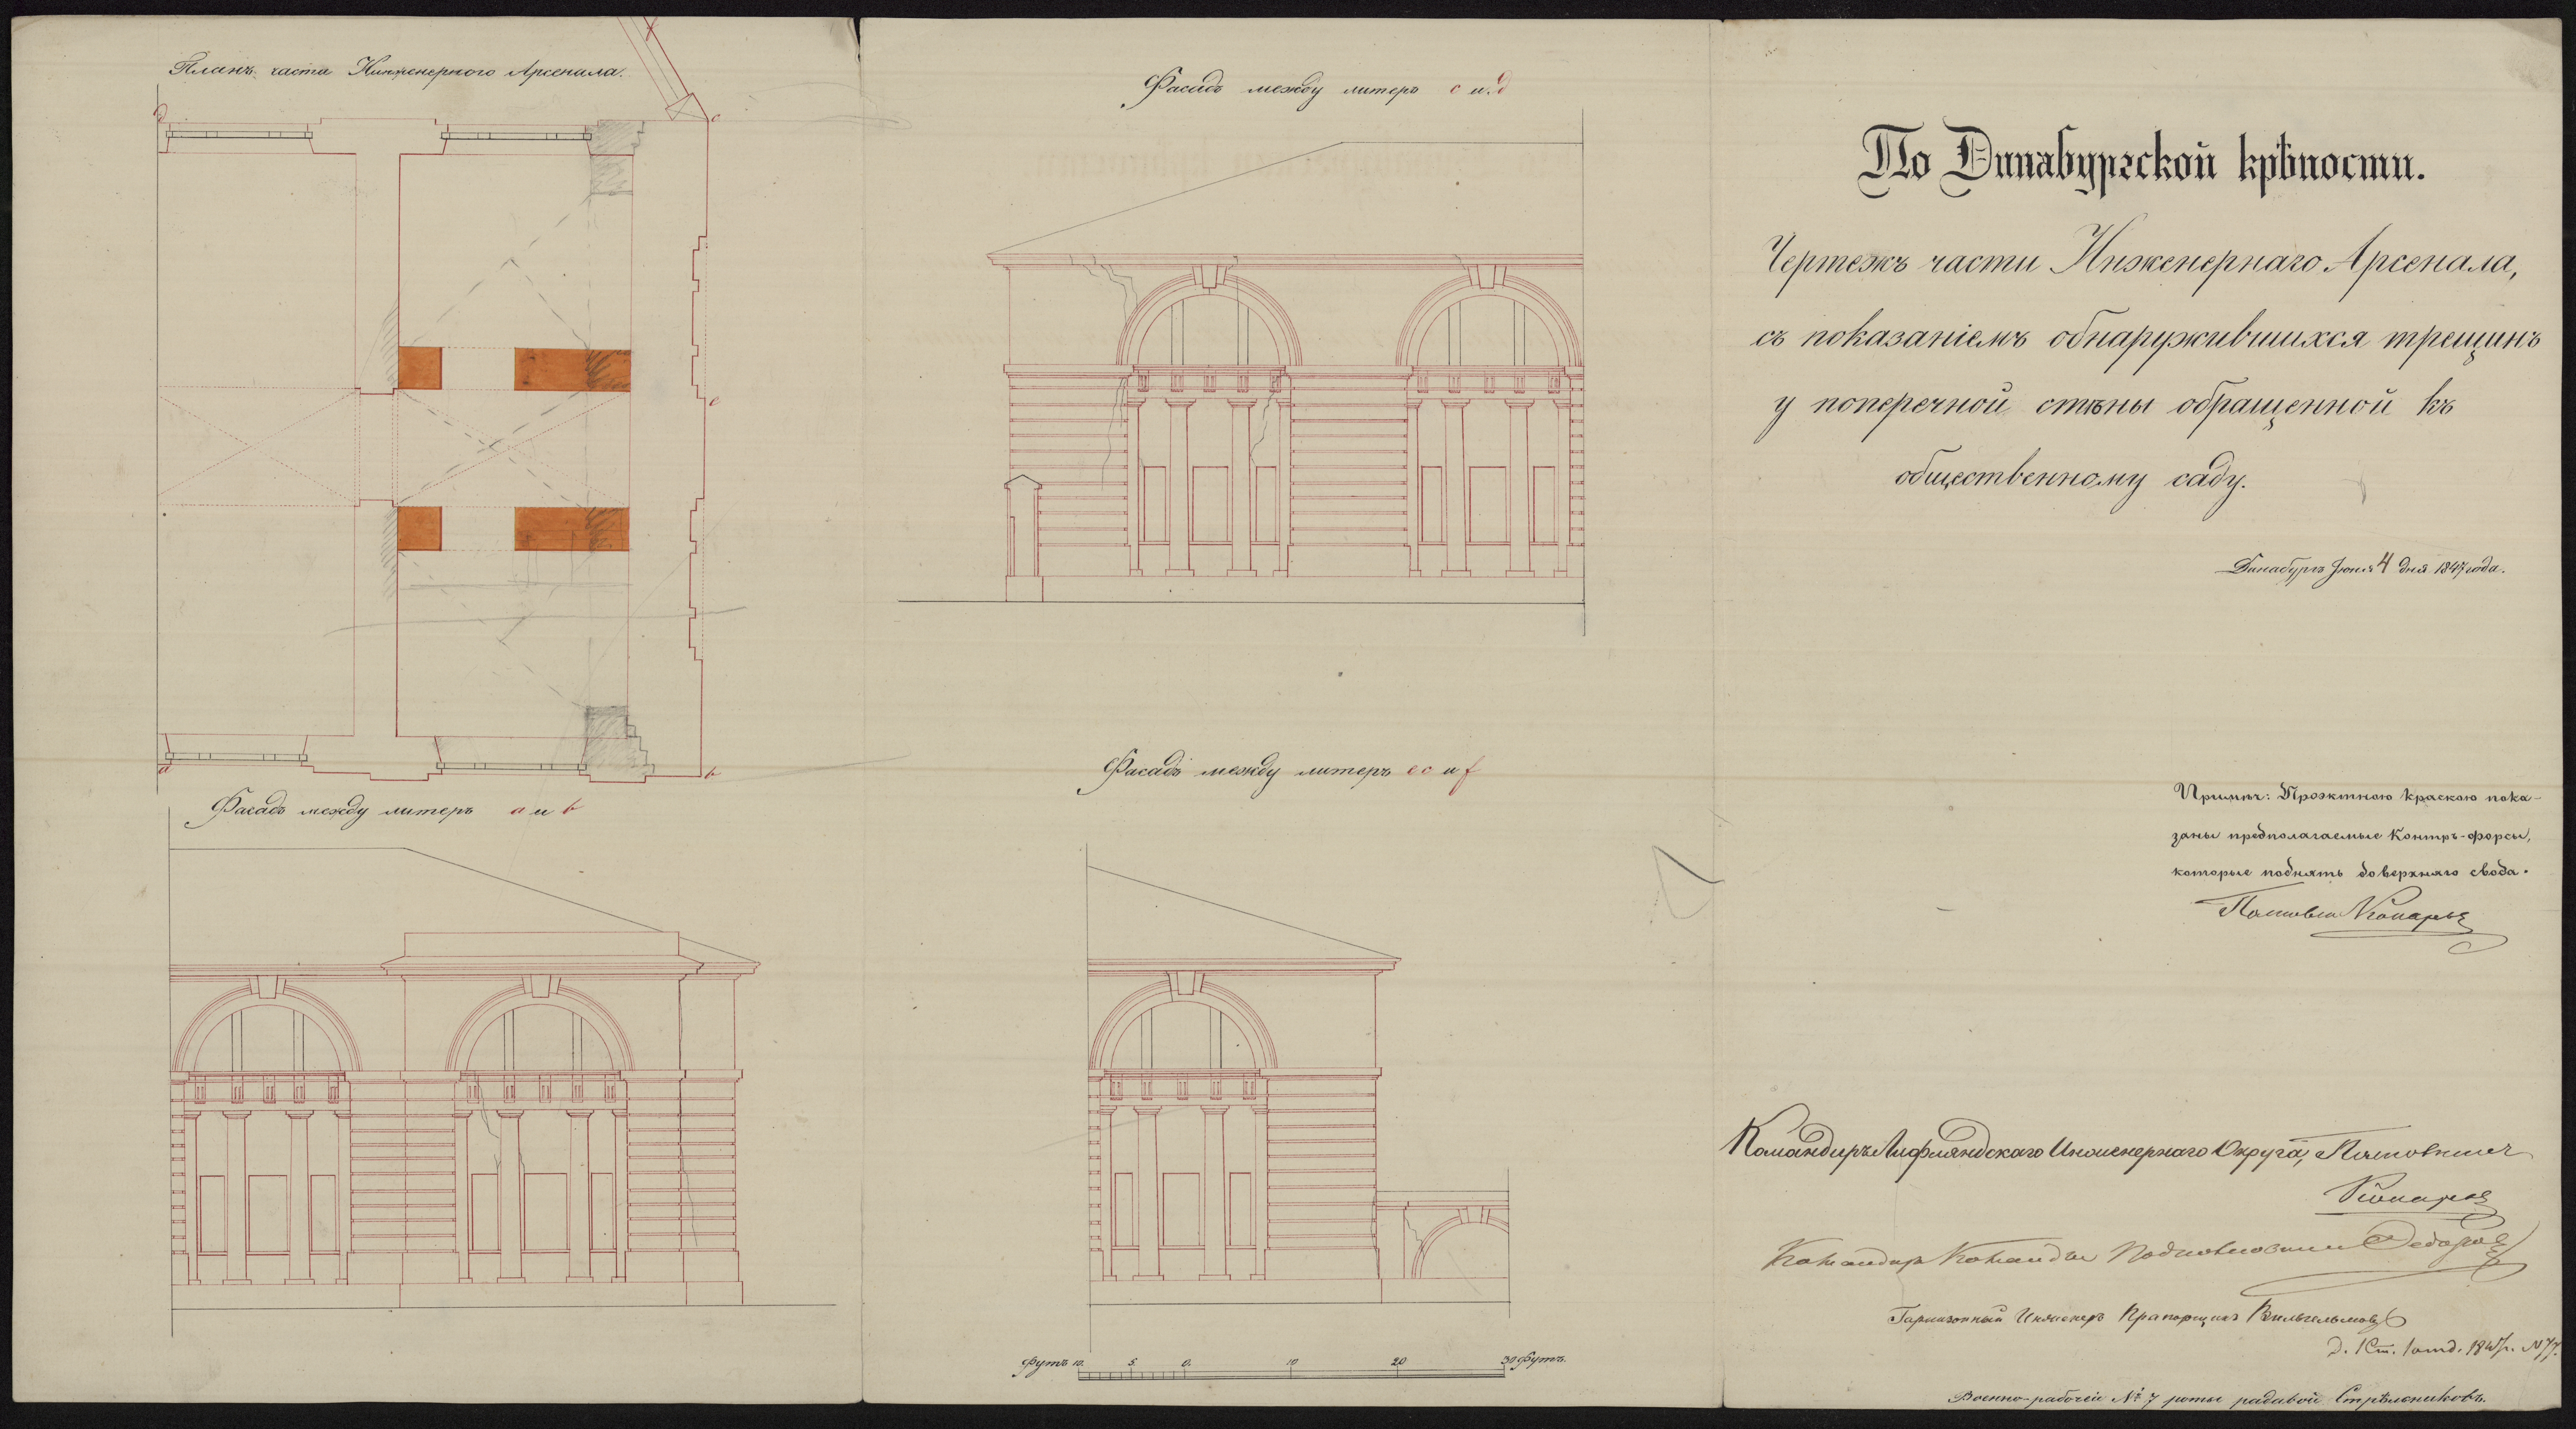 Планъ части Инженернаго Арсенала.
d
c
e
a
b
Фасадъ между литеръ a и b
Фасадъ между литеръ c и d
Фасадъ между литеръ ec и f
Футъ 10. 5. 0. 10 20 30 Футъ.
По Динабургской крѣпости.
Чертежъ части Инженернаго Арсенала,
съ показаніемъ обнаружившихся трещинъ
у поперечной стѣны обращенной къ
общественному саду.
Динабургъ Іюня 4 дня 1847 года.
Примѣч: Проэктною краскою пока-
заны предполагаемые Контръ-форсы,
которые поднять до верхняго свода.
Командиръ Лифляндскаго Инженернаго Округа,
Командиръ Команды Подполковникъ Федоровъ
Гарнизонный Инженеръ Прапорщикъ Вильгельмовъ
Военно-рабочей № 7 роты рядовой Стрѣльниковъ.